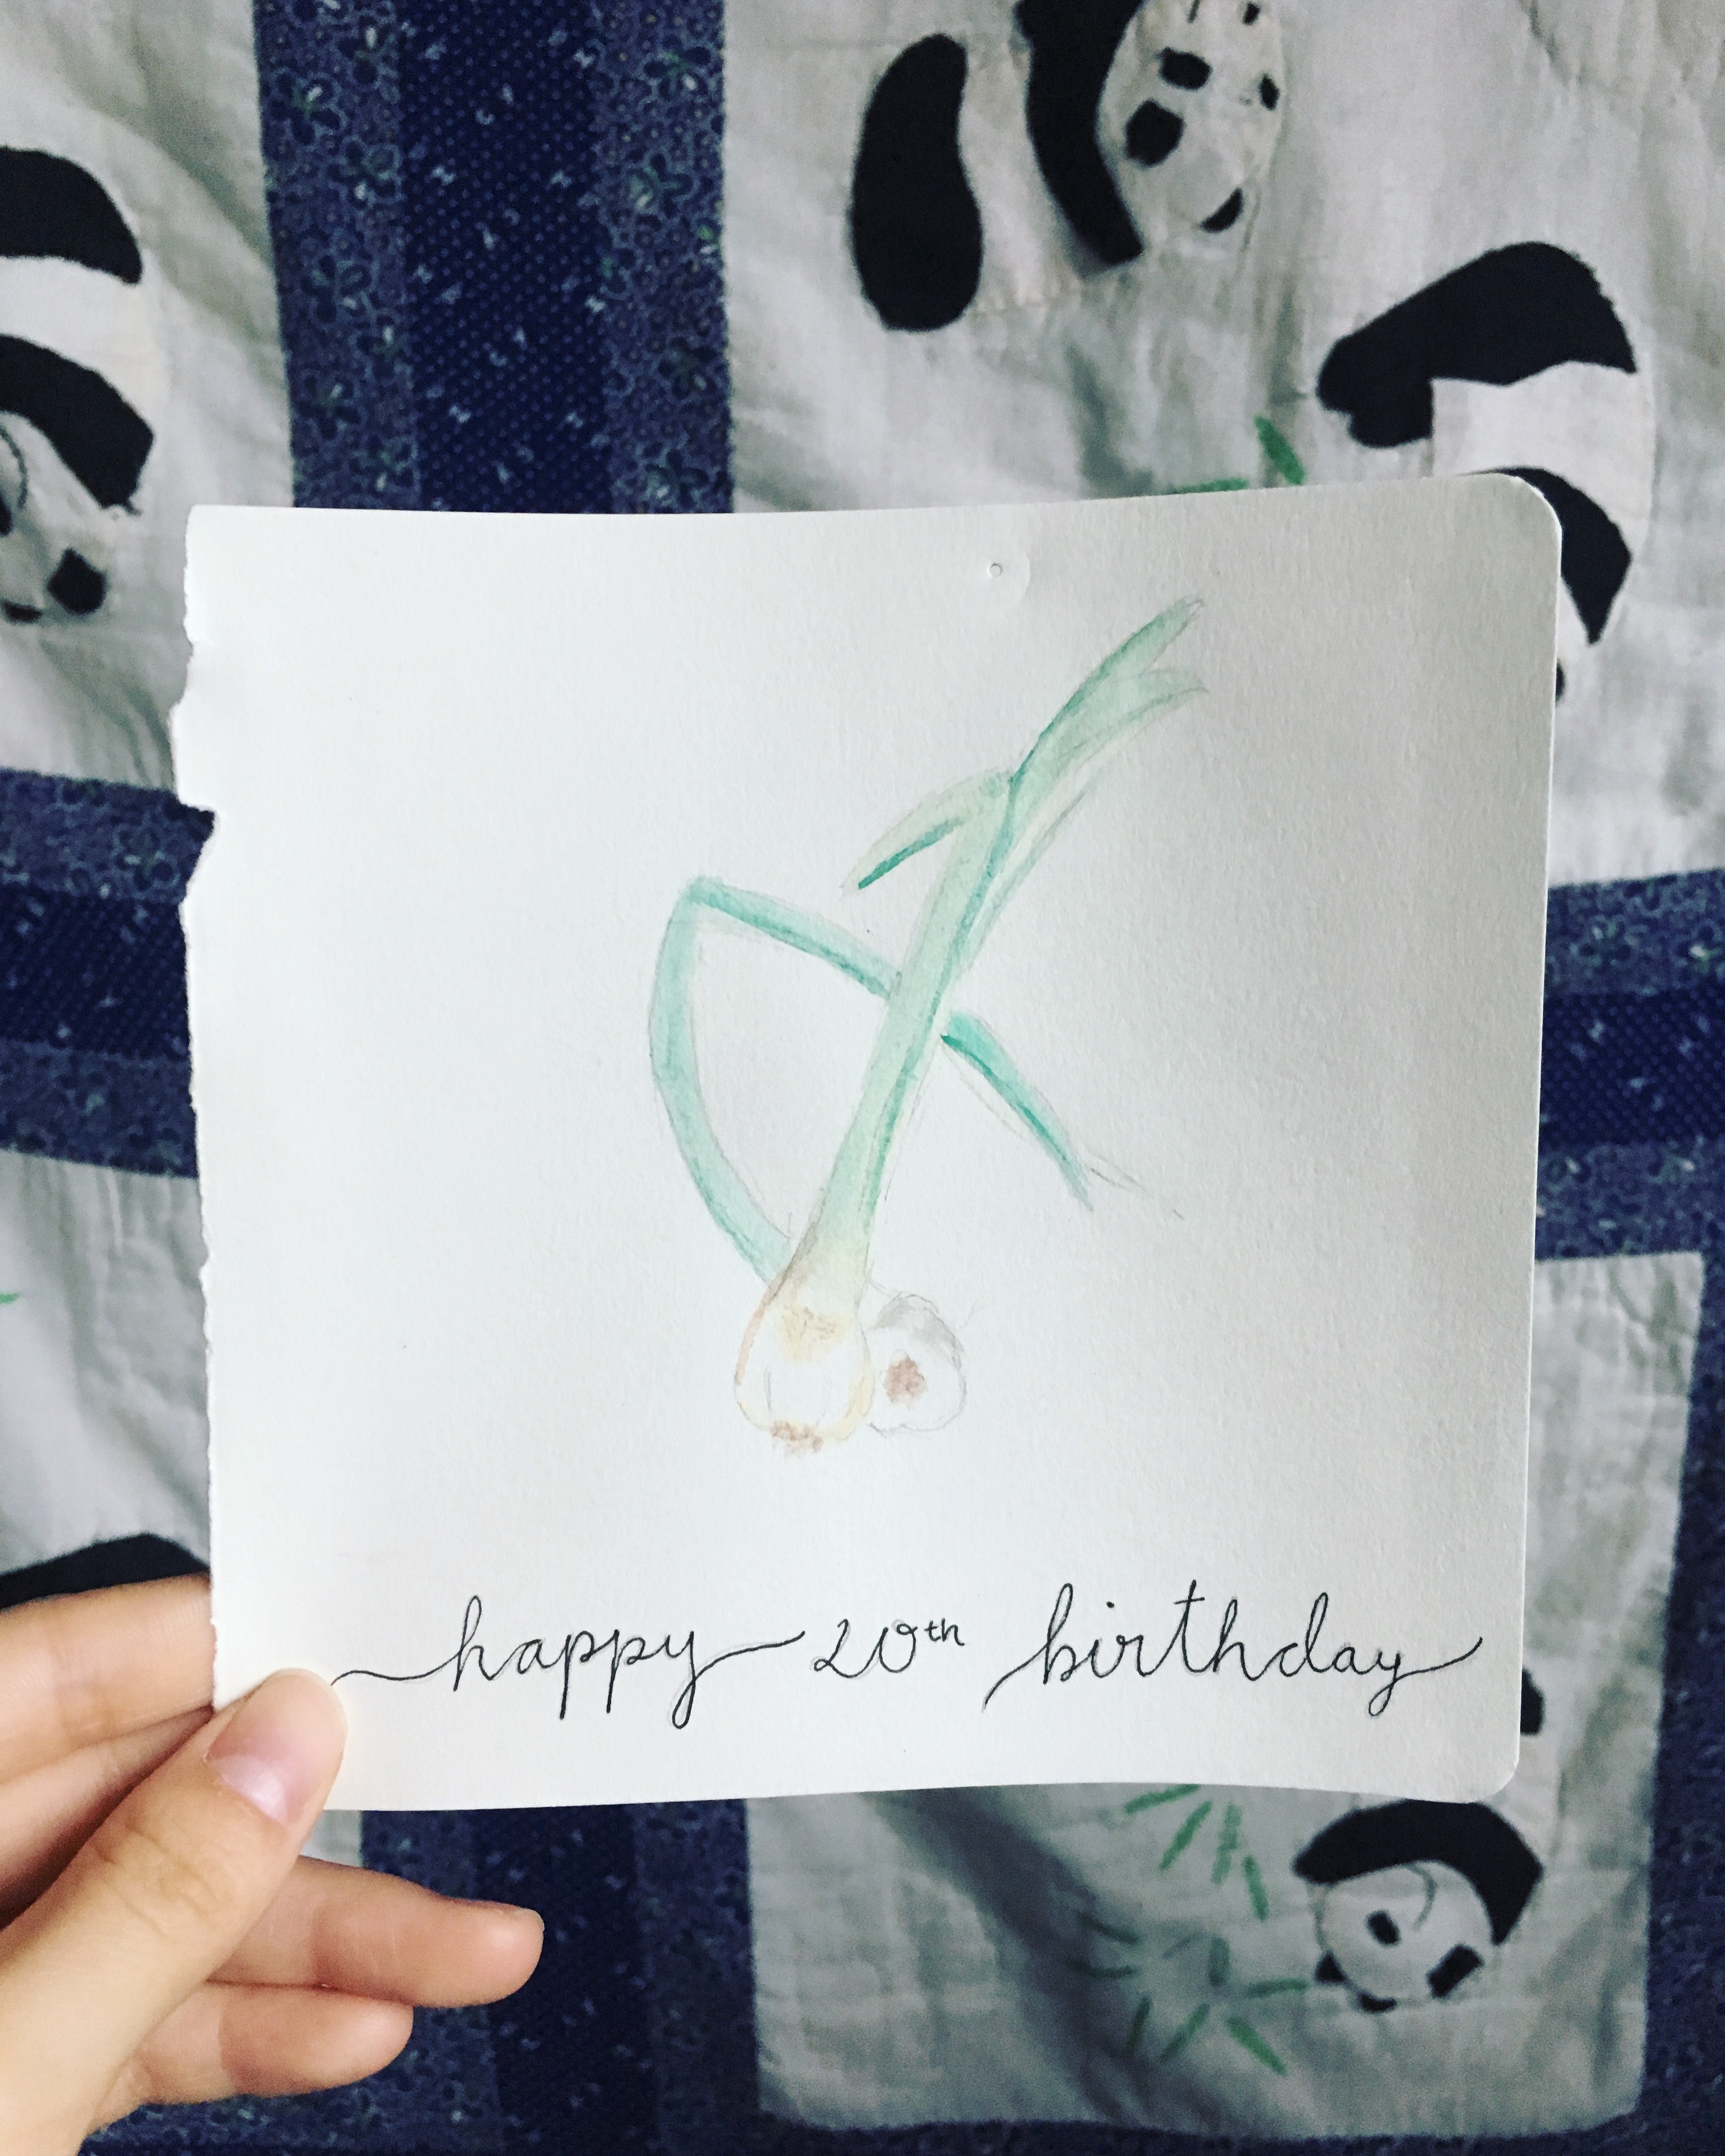 happy 20th birthday